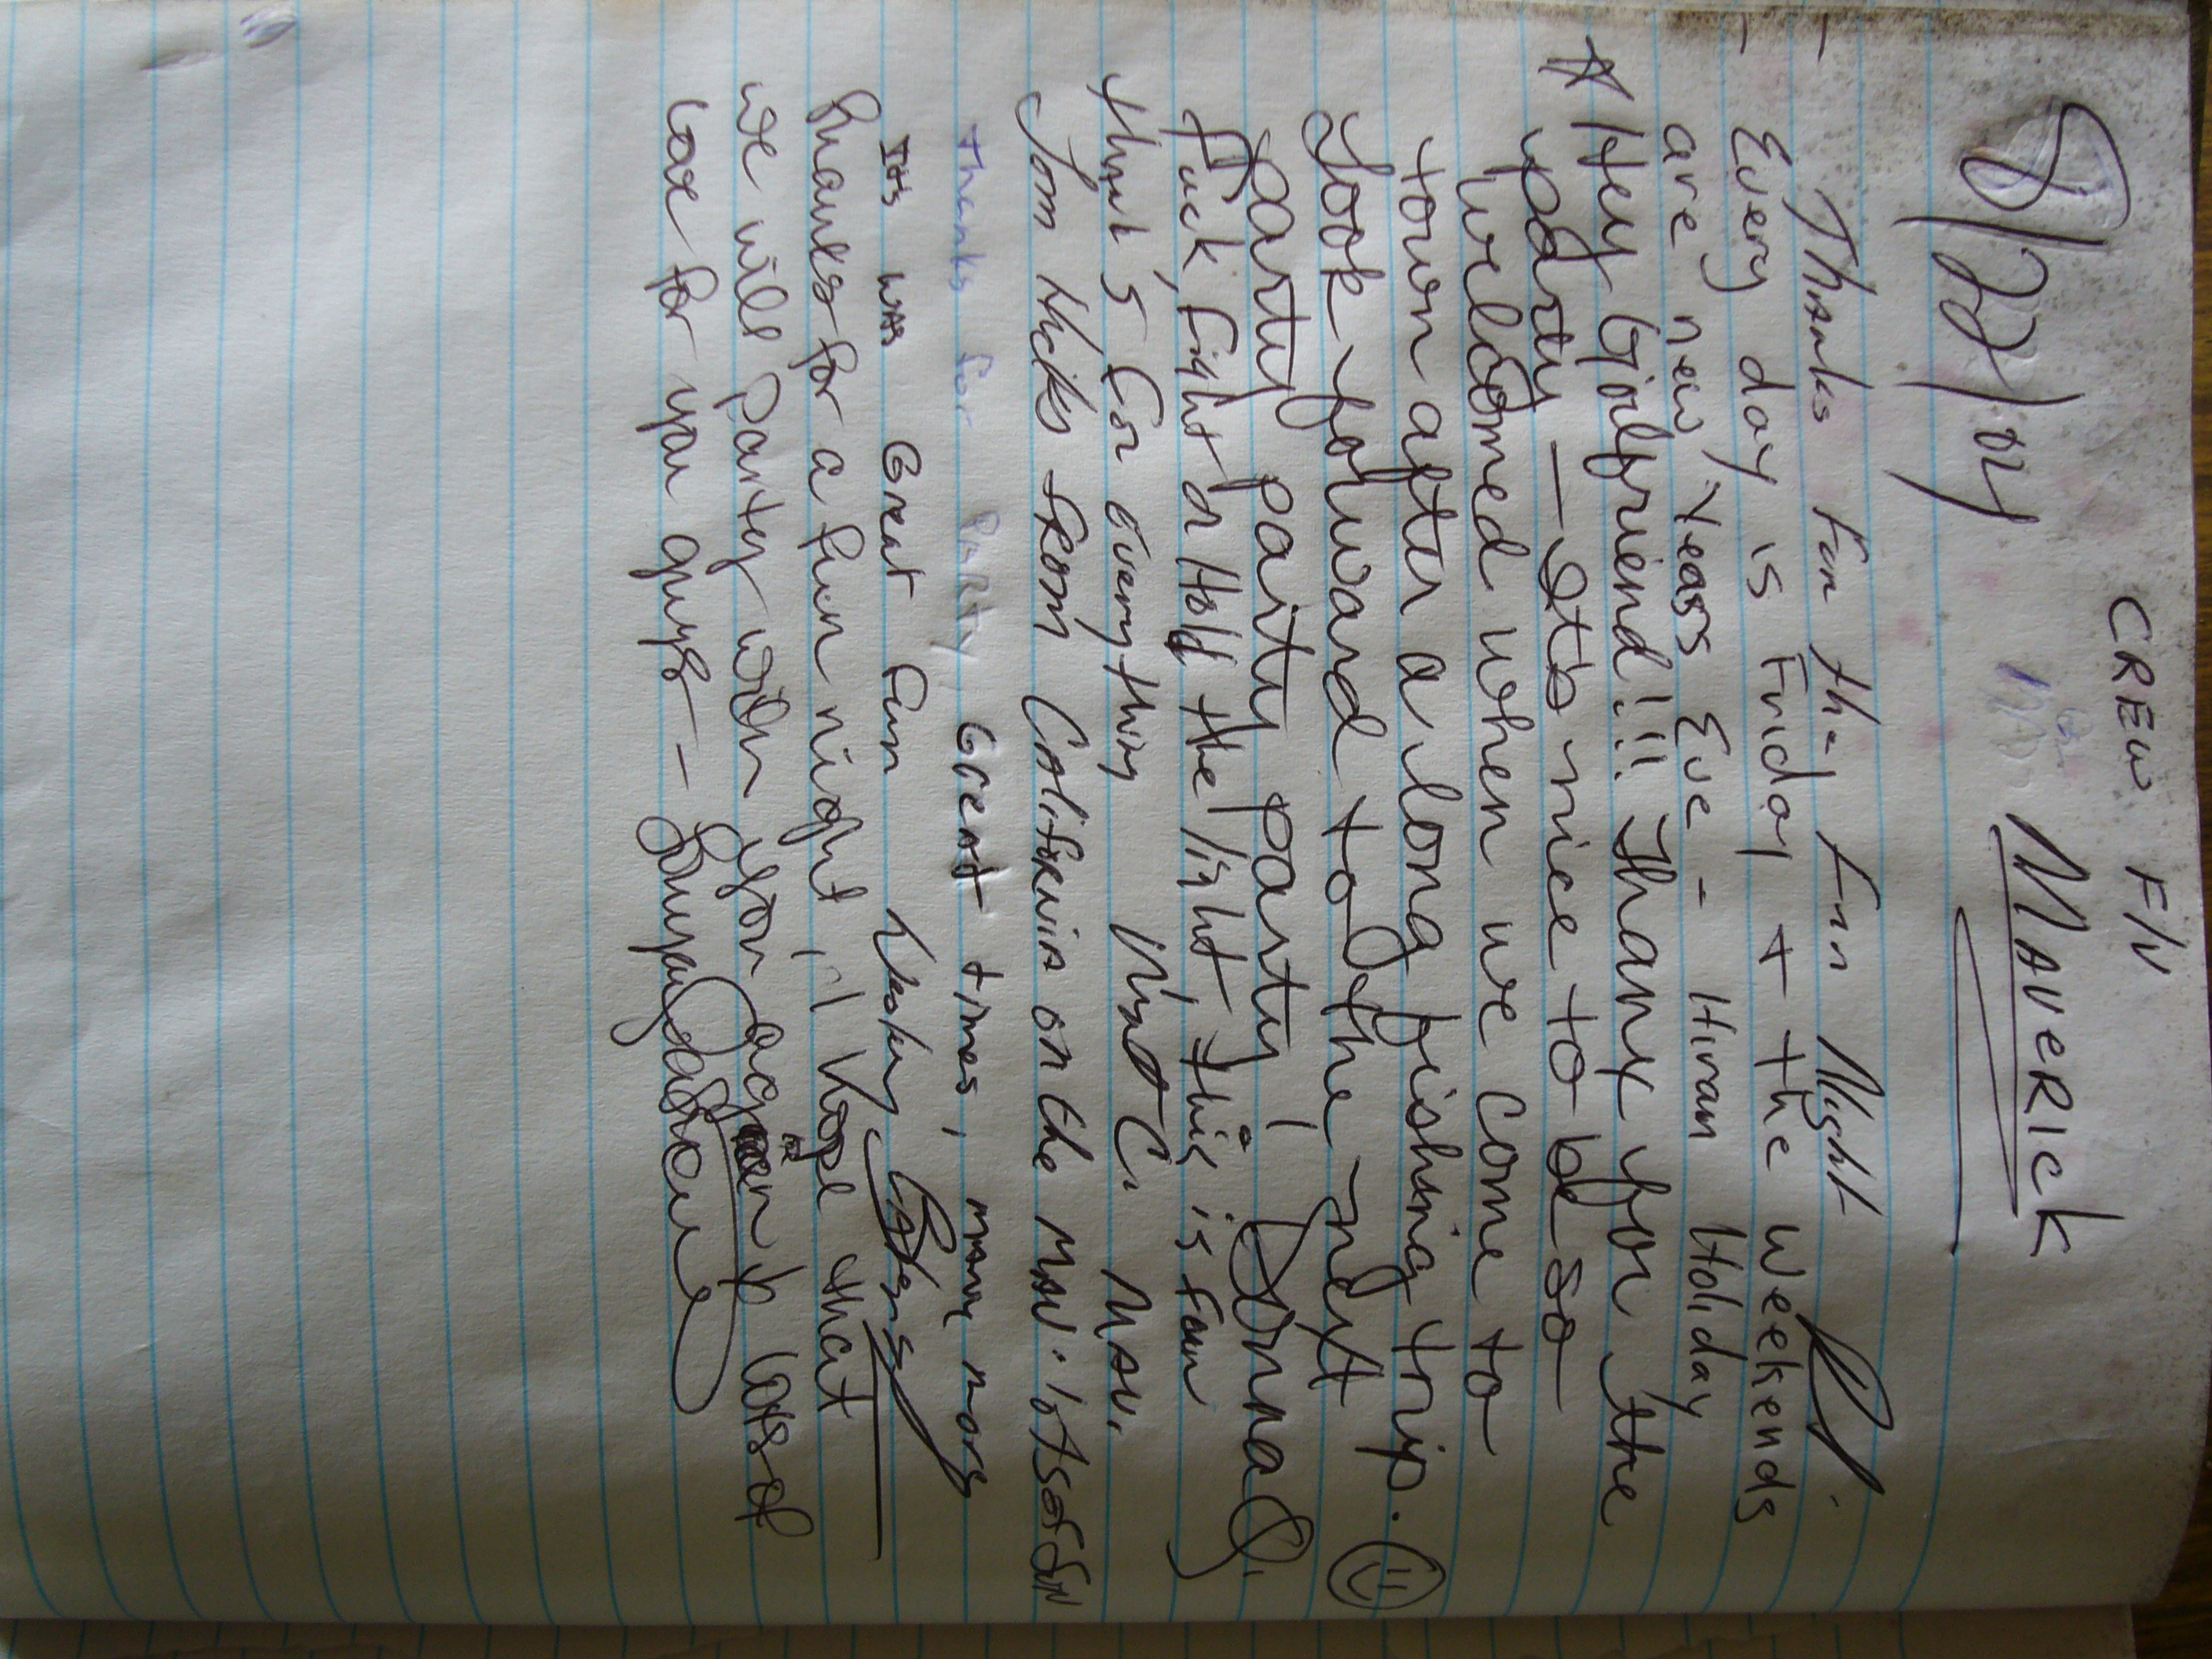 CREW F/V
8/22/04 MAVERICK
- Thanks For the Fun Night
- Every day is Friday + the weekends
are new Years Eve - Hiram Holiday
Hey Girlfriend!!! Thanx for the
party — It's nice to be so
welcomed when we come to
town after a long fishing trip.
Look forward to the next
party party party party! Donna
Fuck, Fight or Hold the light, this is fun
thank's for everything C. MAV.
Tom Hicks FROM CALiforniA on the MAV. lots of fun
Thanks for PARTY, Great times, many more
This was Great fun
Thanks for a fun night, I hope that
we will party with you again lots of
love for you guys —